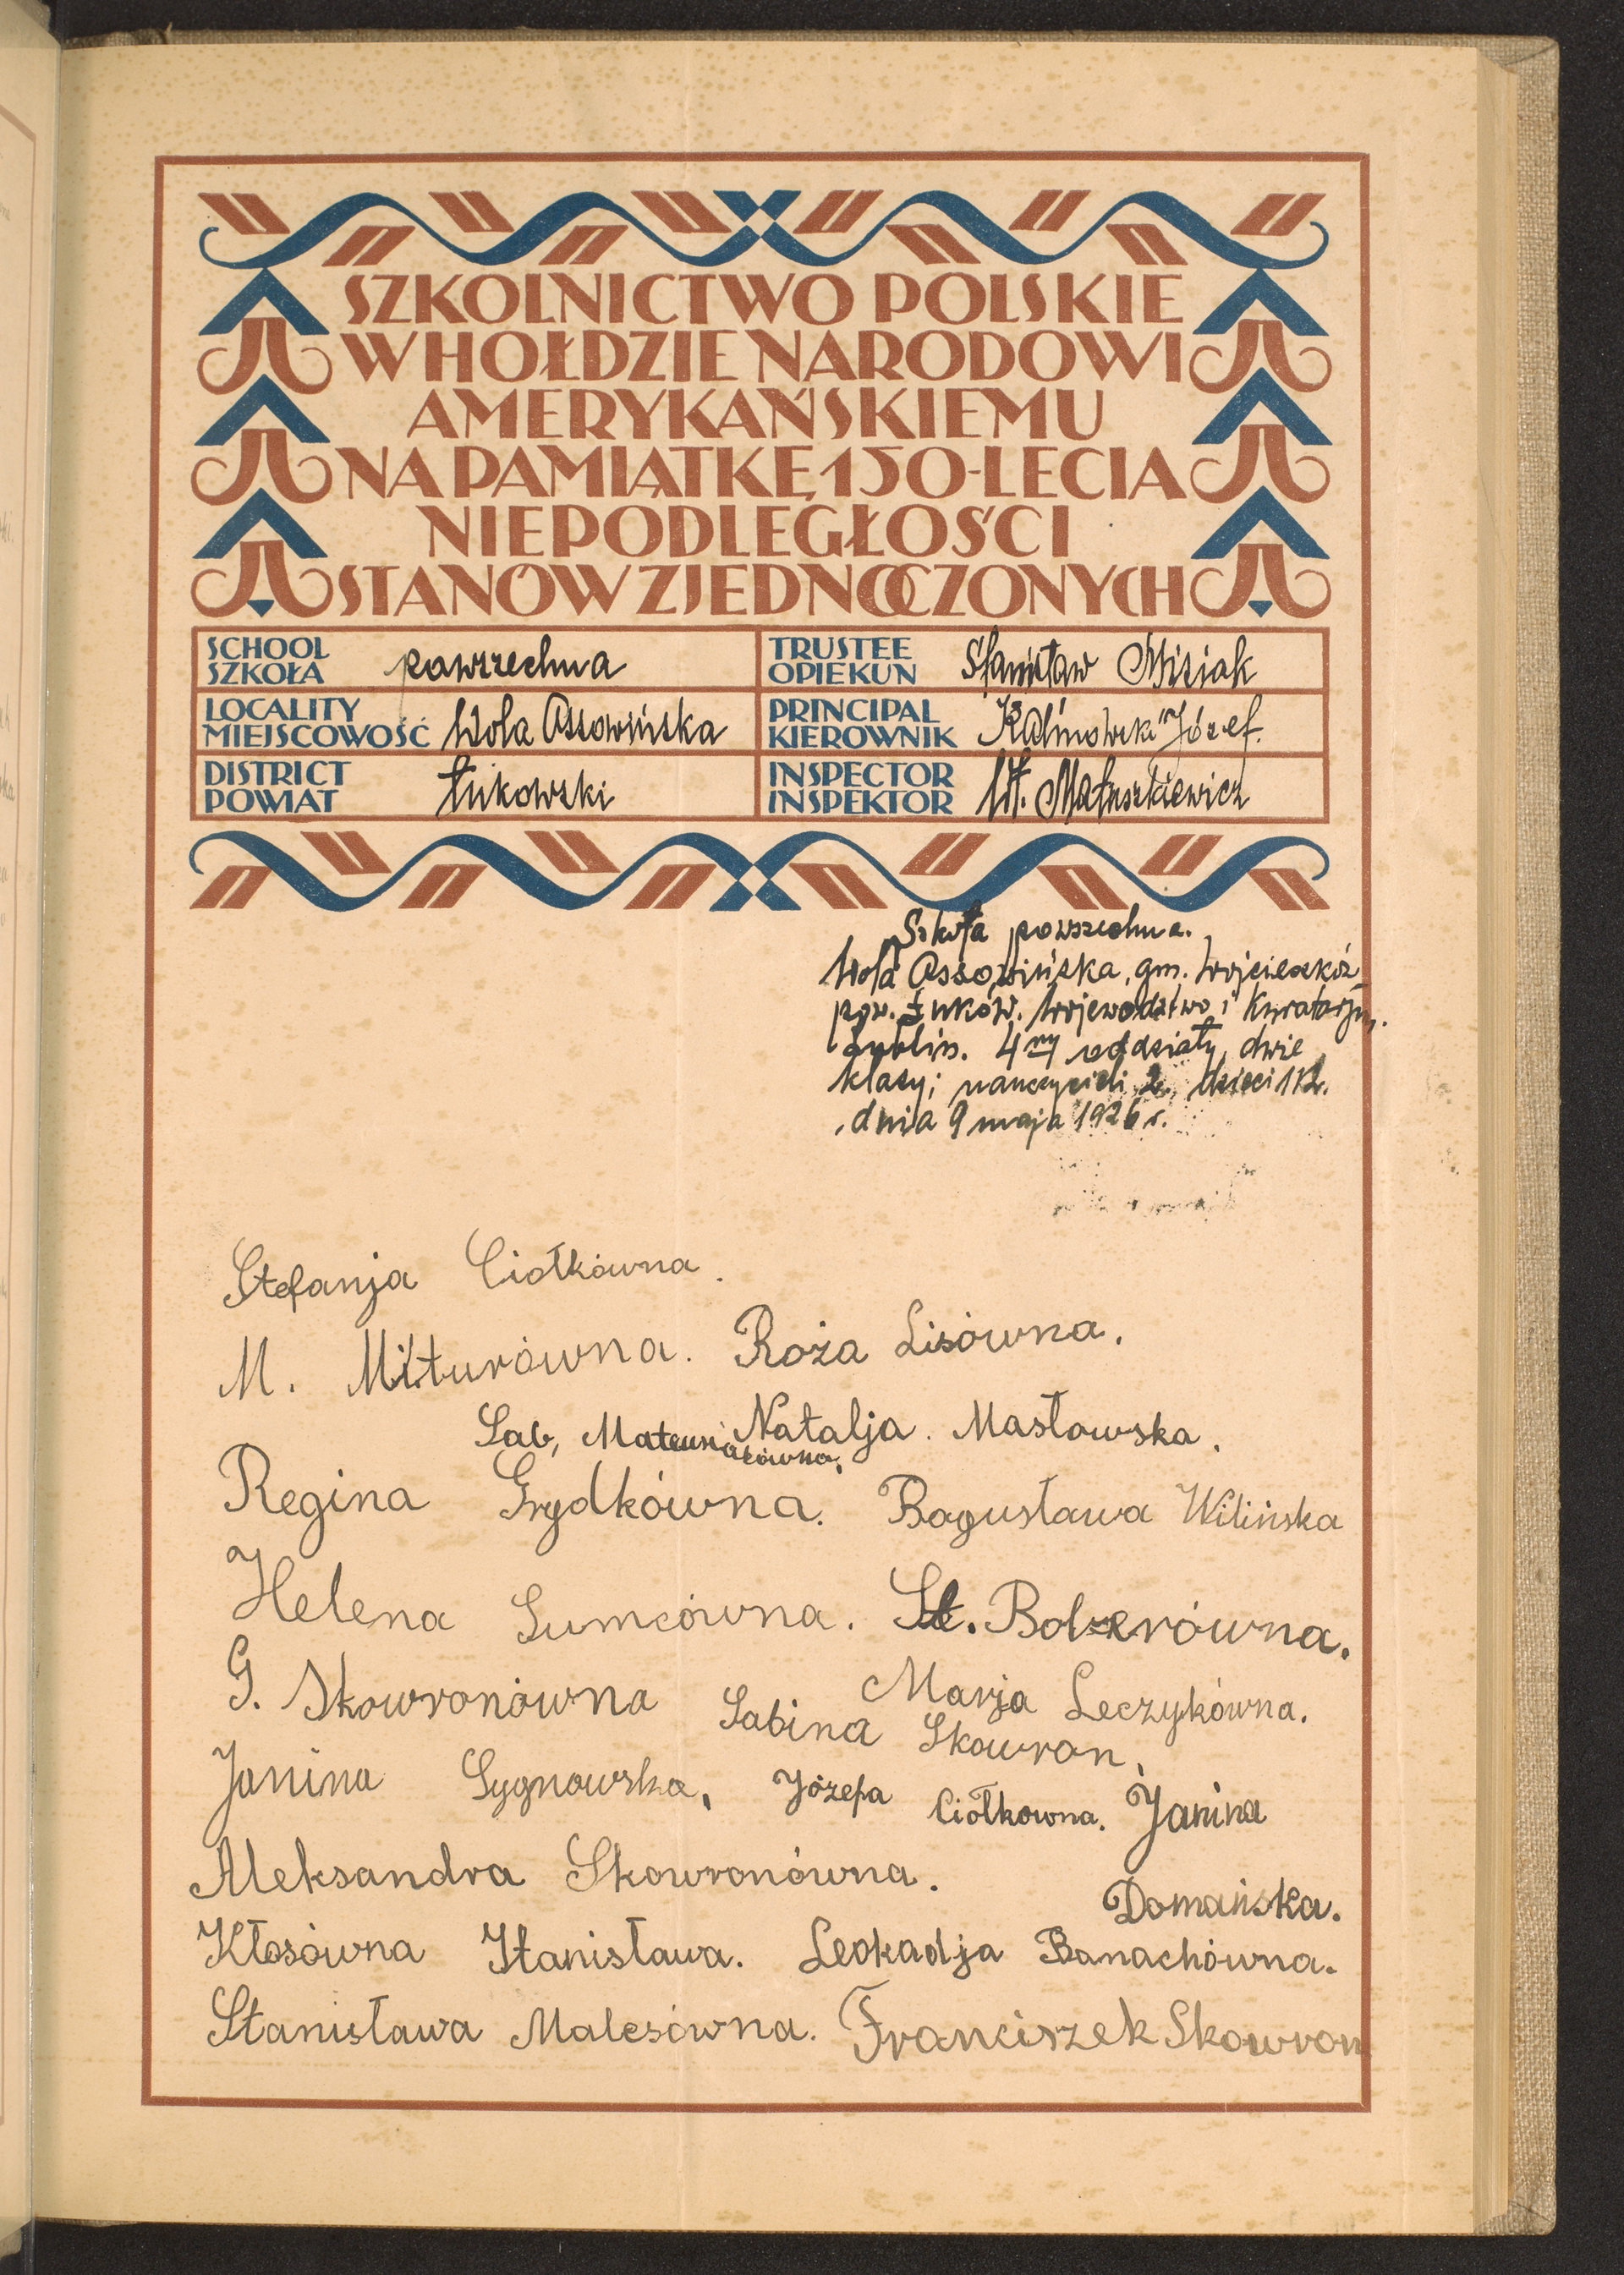 SZKOLNICTWO POLSKIE
W HOŁDZIE NARODOWI
AMERYKAŃSKIEMU
NA PAMIĄTKĘ 150-LECIA
NIEPODLEGŁOŚCI
STANÓW ZJEDNOCZONYCH
SCHOOL
SZKOŁA powszechna
TRUSTEE
OPIEKUN Stanisław Misiak
LOCALITY
MIEJSCOWOŚĆ Wola Ossowińska
PRINCIPAL
KIEROWNIK Kalinowski Józef.
DISTRICT
POWIAT Łukowski
INSPECTOR
INSPEKTOR Wł. Matuszkiewicz
Szkoła powszechna.
Wola Ossowińska, gm. Wojcieszków
pow. Łuków. Województwo i Kuratorjum.
Lublin. 4ry oddziały, dwie
klasy; nauczycieli 2, dzieci 112.
dnia 9 maja 1926 r.
Stefanja Ciołkówna.
M. Miturówna. Roża Lisówna.
Sab, Mateusiakówna, Natalja. Masłowska.
Regina Grydkówna. Bogusława Wilińska
Helena Sumcówna. St. Bolzerówna.
G. Skowronówna Marja Leczykówna.
Sabina Skowron,
Janina Sygnowska, Józefa Ciołkowna. Janina
Aleksandra Skowronówna.
Domańska.
Kłosówna Stanisława. Leokadja Banachówna.
Stanisława Malesówna. Franciszek Skowron